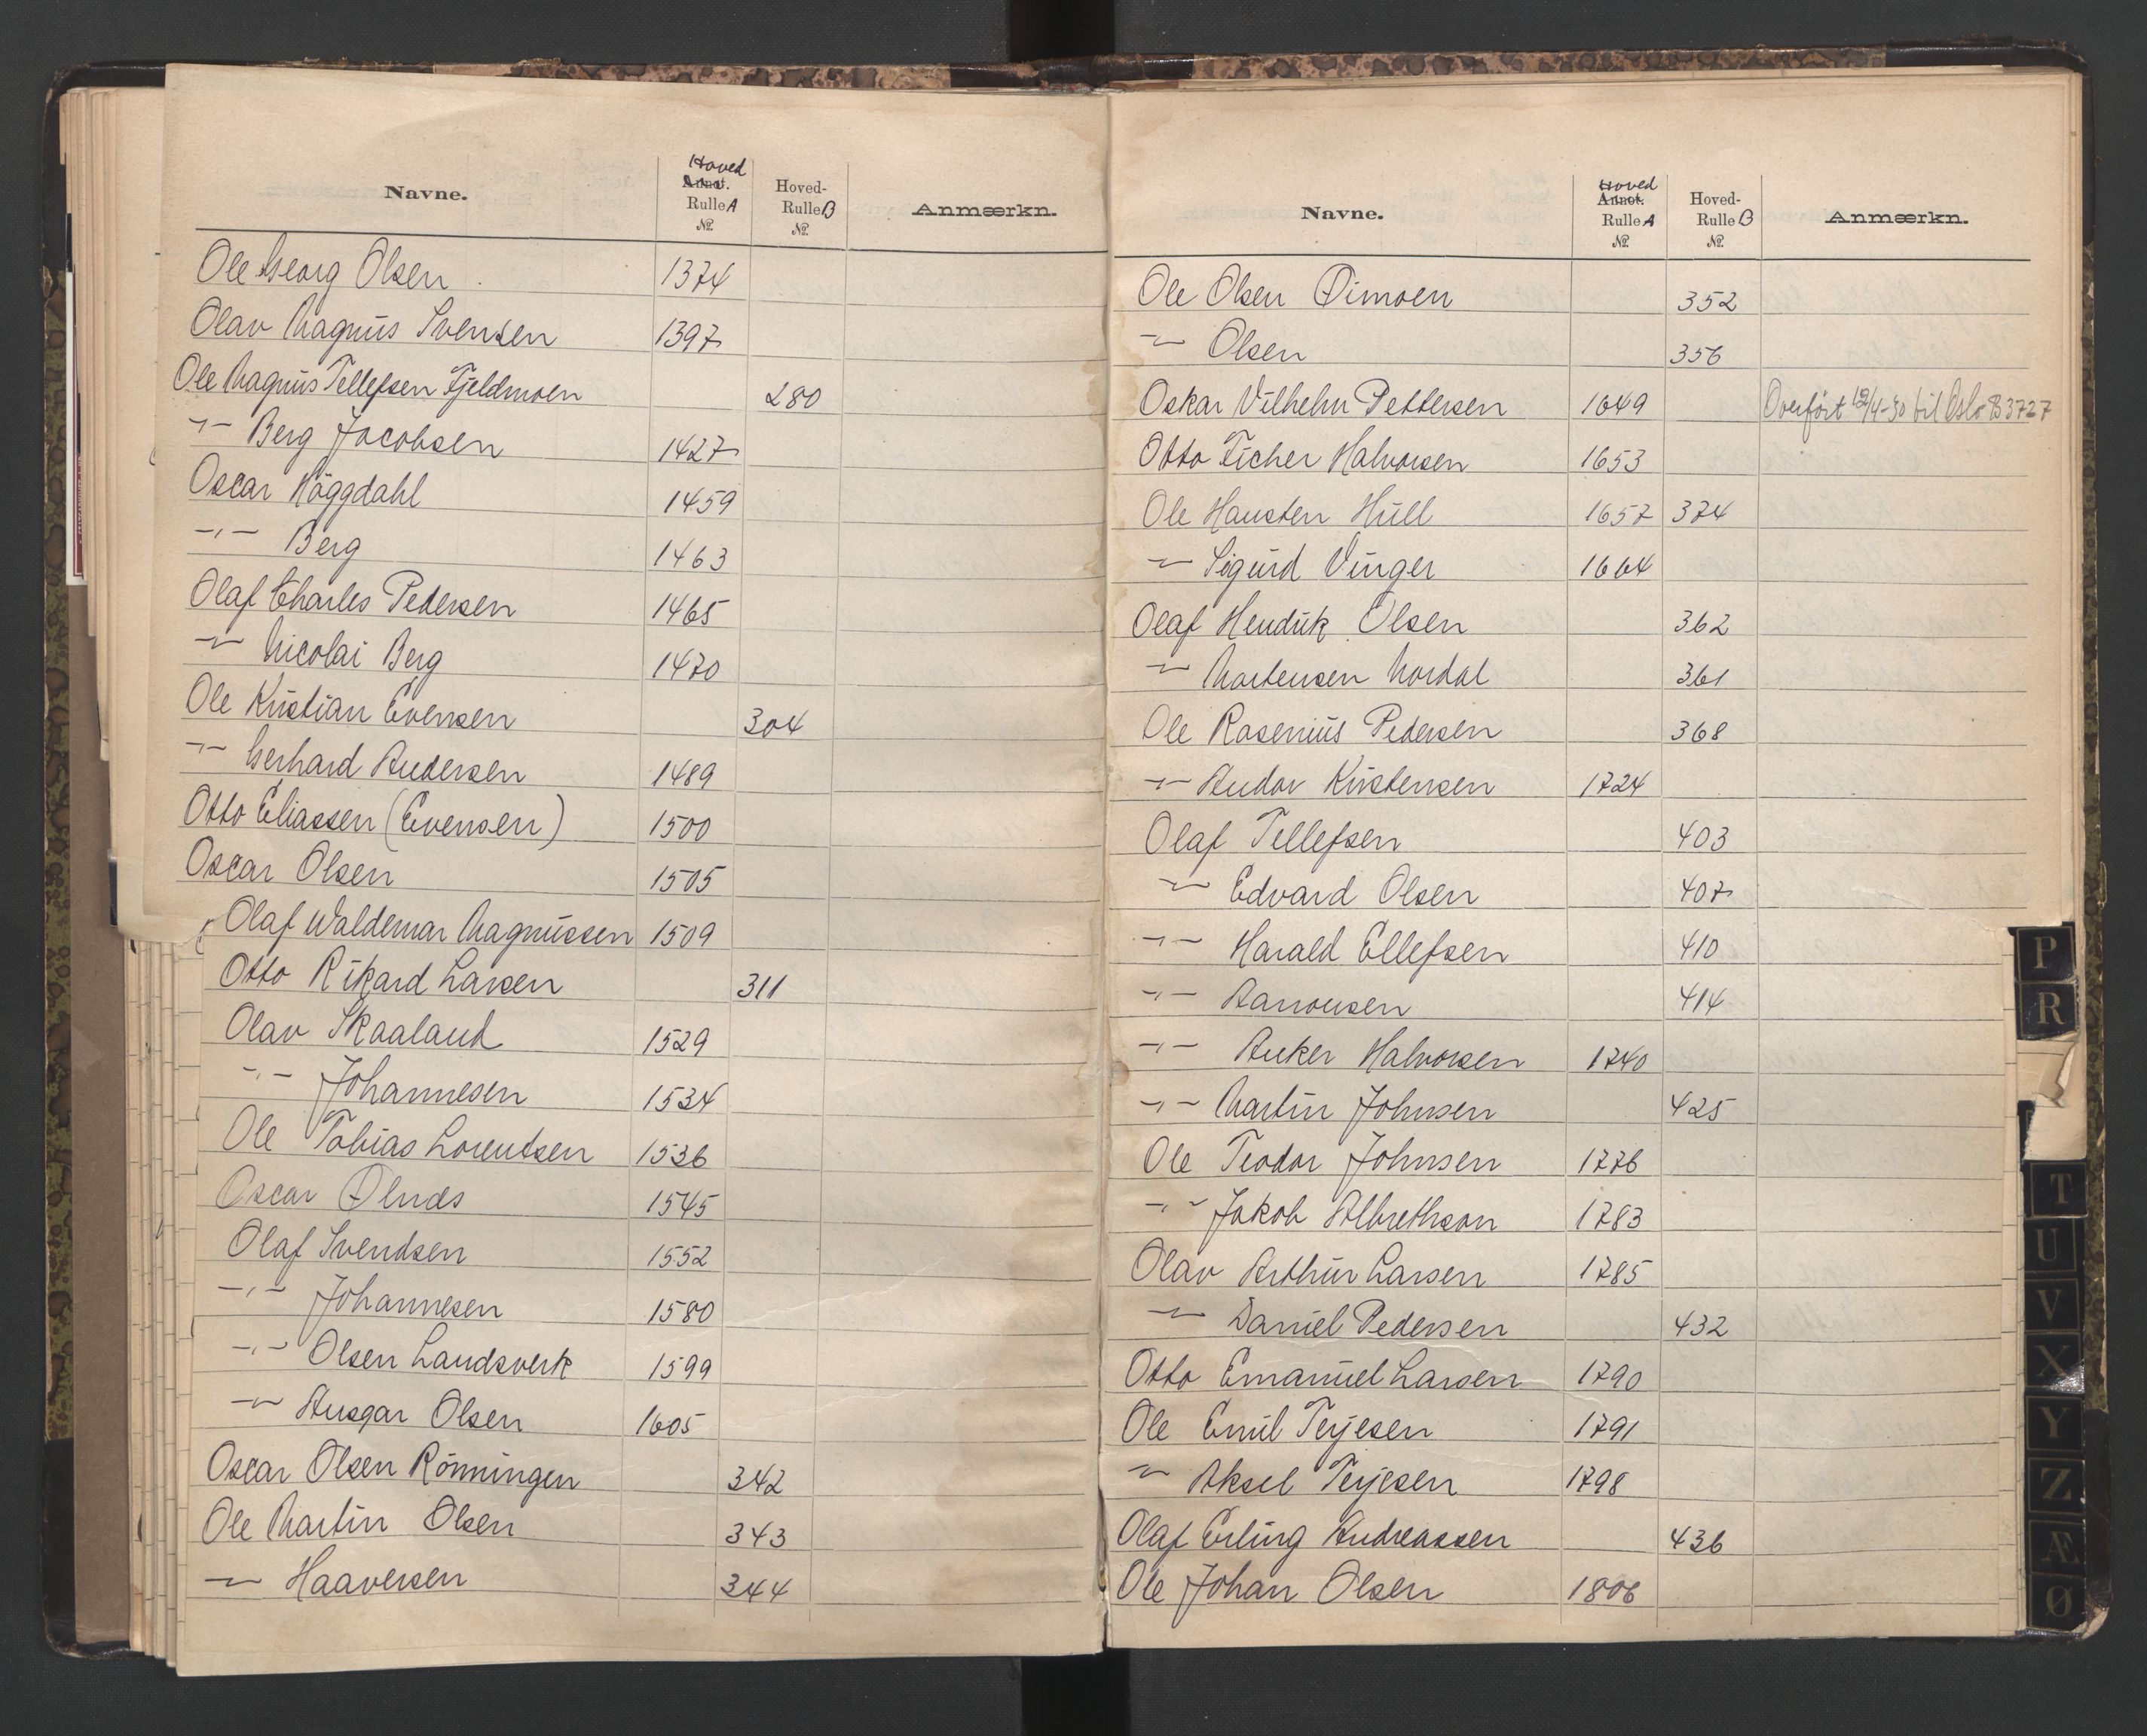 Navne. Hoved Annot. Rulle A № Hoved-Rulle B № Anmærkn.
Ole Georg Olsen 1374
Olav Magnus Svensen 1397
Ole Magnus Tellefsen Fjeldmoen 280
-"- Berg Jacobsen 1427
Oscar Häggdahl 1459
-"- Berg 1463
Olaf Charles Pedersen 1465
-"- Nicolai Berg 1470
Ole Kristian Evensen 304
-"- Gerhard Andersen 1489
Otto Eliassen (Evensen) 1500
Oscar Olsen 1505
Olaf Waldemar Magnussen 1509
Otto Rikard Larsen 311
Olav Skaaland 1529
-"- Johannesen 1534
Ole Tobias Lorentsen 1536
Oscar Ølnes 1545
Olaf Svendsen 1552
-"- Johannesen 1580
-"- Olsen Landsverk 1599
-"- Ansgar Olsen 1605
Oscar Olsen Rönningen 342
Ole Martin Olsen 343
-"- Haaversen 344
Navne. Hoved Annot. Rulle A № Hoved-Rulle B № Anmærkn.
Ole Olsen Øimoen 352
-"- Olsen 356
Oskar Vilhelm Pettersen 1649 Overført 12/4-30 til Oslo B 3727
Otto Ficher Halvorsen 1653
Ole Hansten Hull 1657 374
-"- Sigurd Vinger 1664
Olaf Hendrik Olsen 362
-"- Mortensen Nordal 361
Ole Rasenius Pedersen 368
-"- Andor Kristensen 1724
Olaf Tellefsen 403
-"- Edvard Olsen 407
-"- Harald Ellefsen 410
-"- Aanonsen 414
-"- Anker Halvorsen 1740
-"- Martin Johnsen 425
Ole Teodor Johnsen 1776
-"- Jakob Albrethson 1783
Olav Arthur Larsen 1785
-"- Daniel Pedersen 432
Otto Emanuel Larsen 1790
Ole Emil Terjesen 1791
-"- Aksel Terjesen 1798
Olaf Erling Andreassen 436
Ole Johan Olsen 1806
P
R
T
U
V
X
Y
Z
Æ
Ø